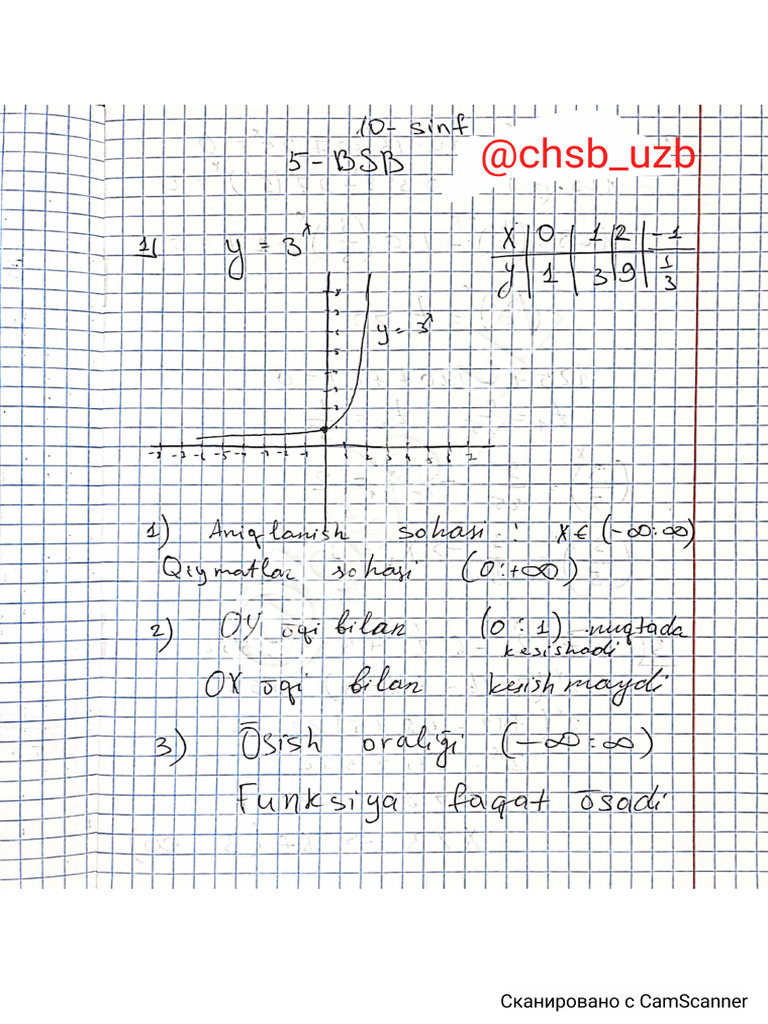 10- sinf
5-BSB
@chsb_uzb
1) y = 3ˣ
x | 0 | 1 | 2 | -1
y | 1 | 3 | 9 | 1/3
y = 3ˣ
1) Aniqlanish sohasi : x ∈ (-∞:∞)
Qiymatlar sohasi (0:+∞)
2) OY ōqi bilan (0:1) nuqtada
kesishadi
OX ōqi bilan kesishmaydi
3) Ōsish oraliği (-∞:∞)
Funksiya faqat ōsadi
Сканировано с CamScanner